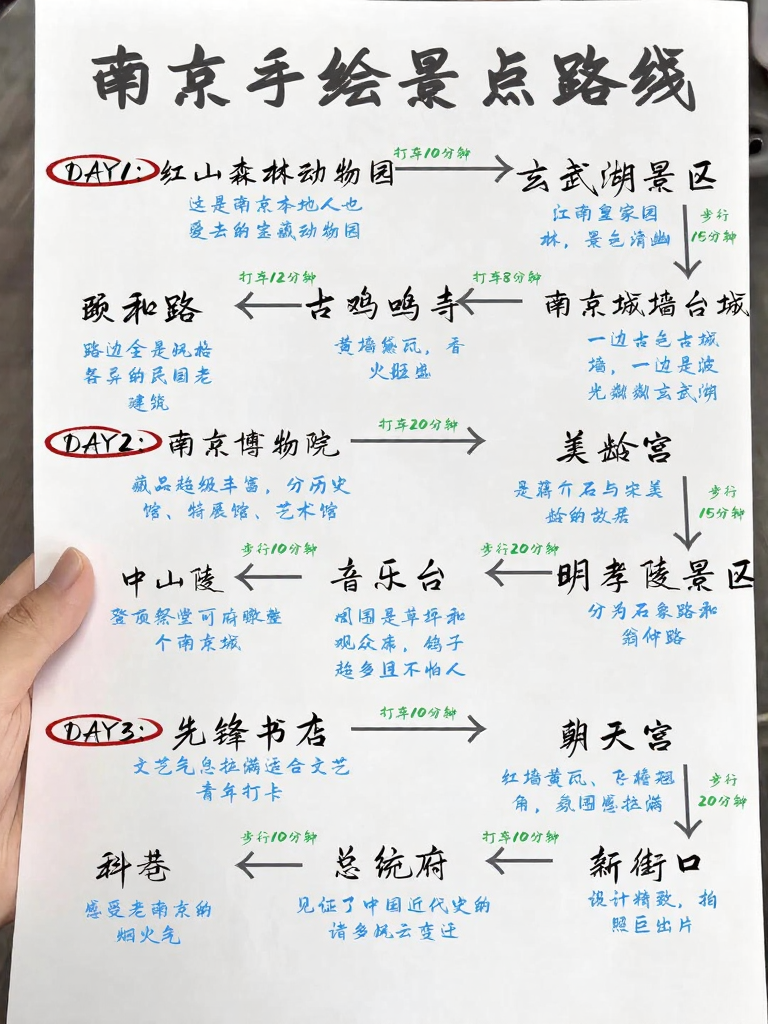 南京手绘景点路线
打车10分钟
DAY1:红山森林动物园
玄武湖景区
这是南京本地人也
爱去的宝藏动物园
江南皇家园
林，景色清幽
步行
15分钟
打车12分钟
打车8分钟
颐和路
古鸡鸣寺
南京城墙台城
路边全是风格
各异的民国老
建筑
黄墙黛瓦，香
火旺盛
一边古色古城
墙，一边是波
光粼粼玄武湖
打车20分钟
DAY2:南京博物院
美龄宫
藏品超级丰富，分历史
馆、特展馆、艺术馆
是蒋介石与宋美
龄的故居
步行
15分钟
步行10分钟
步行20分钟
中山陵
音乐台
明孝陵景区
登顶祭堂可俯瞰整
个南京城
周围是草坪和
观众席，鸽子
超多且不怕人
分为石象路和
翁仲路
打车10分钟
DAY3:先锋书店
朝天宫
文艺气息拉满适合文艺
青年打卡
红墙黄瓦、飞檐翘
角，氛围感拉满
步行
20分钟
步行10分钟
打车10分钟
科巷
总统府
新街口
感受老南京的
烟火气
见证了中国近代史的
诸多风云变迁
设计精致，拍
照巨出片